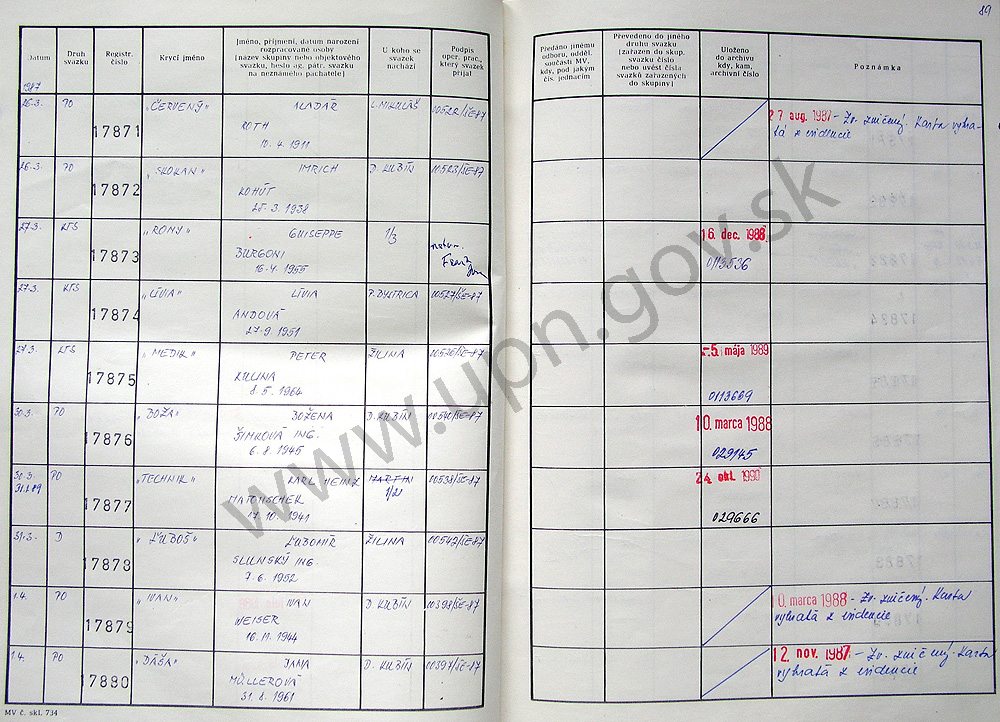 89
Datum
Druh
svazku
Registr.
číslo
Krycí jméno
Jméno, příjmení, datum narození
rozpracované osoby
[název skupiny nebo objektového
svazku, heslo ag. pátr. svazku
na neznámého pachatele]
U koho se
svazek
nachází
Podpis
oper. prac.,
který svazek
přijal
Předáno jinému
odboru, odděl.
součásti MV,
kdy, pod jakým
čís. jednacím
Převedeno do jiného
druhu svazku
[zařazen do skup.
svazku číslo
nebo uvést čísla
svazků zařazených
do skupiny]
Uloženo
do archivu
kdy, kam,
archivní číslo
Poznámka
1987
26.3. PO 17871 „ČERVENÝ" ALADÁR L. MIKULÁŠ 00522/ŠE-87
ROTH
10.4.1911
27 aug. 1987 - Zv. zničený. Karta vybra-
tá z evidencie
26.3. PO 17872 „SKOKAN" IMRICH D. KUBÍN 00523/ŠE-87
KOHÚT
25.3.1938
27.3. KTS 17873 „RONY" GUISEPPE 1/3
BURGONI
16.4.1955
16. dec. 1988
0113536
27.3. KTS 17874 „LÍVIA" LÍVIA P. BYSTRICA 00527/ŠE-87
ANDOVÁ
27.9.1951
27.3. KTS 17875 „MEDIK" PETER ŽILINA 00526/ŠE-87
8.5.1964
-5. mája 1989
0113669
30.3. PO 17876 „BOŽA" BOŽENA D. KUBÍN 00540/ŠE-87
ŠIMKOVÁ ING.
6.8.1945
10. marca 1988
029145
30.3. PO 17877 „TECHNIK" KARL HEINZ MARTIN 00538/ŠE-87
MATONSCHEK
17.10.1941
24. okt. 1990
029666
31.3. D 17878 „ĽUBOŠ" ĽUBOMÍR ŽILINA 00542/ŠE-87
SLUNSKÝ ING.
7.6.1952
1.4. PO 17879 „IVAN" IVAN D. KUBÍN 00398/ŠE-87
WEISER
16.11.1944
10. marca 1988 - Zv. zničený. Karta
vybratá z evidencie
1.4. PO 17880 „DÁŠA" JANA D. KUBÍN 00397/ŠE-87
MÜLLEROVÁ
31.8.1961
12. nov. 1987 - Zv. zničený. Karta
vybratá z evidencie
MV č. skl. 734
www.upn.gov.sk